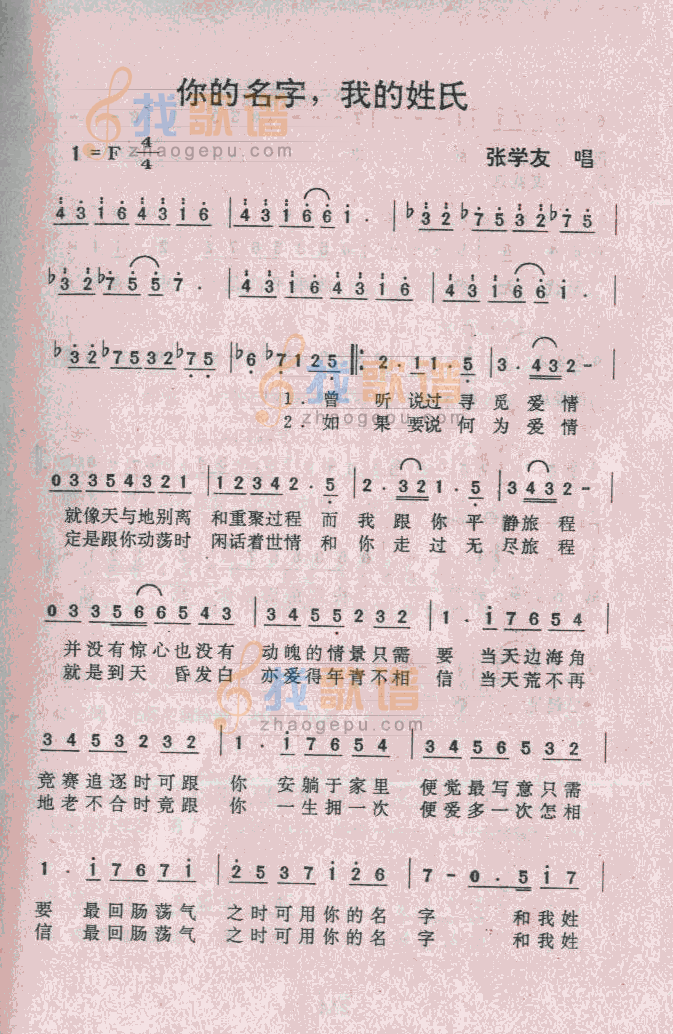 你的名字，我的姓氏
我歌谱
zhaogepu.com
1 = F 4/4
张学友 唱
4 3 1 6 4 3 1 6 | 4 3 1 6 6 1 . | ♭3 2 ♭7 5 3 2 ♭7 5 |
♭3 2 ♭7 5 5 7 . | 4 3 1 6 4 3 1 6 | 4 3 1 6 6 1 . |
♭3 2 ♭7 5 3 2 ♭7 5 | ♭6 ♭7 1 2 5 ‖: 2 . 1 1 5 | 3 . 4 3 2 - |
找歌谱
zhaogepu.com
1. 曾 听 说过 寻 觅 爱 情
2. 如 果 要说 何 为 爱 情
0 3 3 5 4 3 2 1 | 1 2 3 4 2 . 5 | 2 . 3 2 1 . 5 | 3 4 3 2 - |
就像天与地别离 和重聚过程 而 我 跟 你 平 静旅 程
定是跟你动荡时 闲话着世情 和 你 走 过 无 尽旅 程
0 3 3 5 6 6 5 4 3 | 3 4 5 5 2 3 2 | 1 . 1 7 6 5 4 |
并没有惊心也没有 动魄的情景只需 要 当天边海角
就是到天 昏发白 亦爱得年青不相 信 当天荒不再
找歌谱
zhaogepu.com
3 4 5 3 2 3 2 | 1 . 1 7 6 5 4 | 3 4 5 6 5 3 2 |
竞赛追逐时可跟 你 安躺于家里 便觉最写意只需
地老不合时竟跟 你 一生拥一次 便爱多一次怎相
1 . 1 7 6 7 1 | 2 5 3 7 1 2 6 | 7 - 0 . 5 1 7 |
要 最回肠荡气 之时可用你的名 字 和我姓
信 最回肠荡气 之时可用你的名 字 和我姓